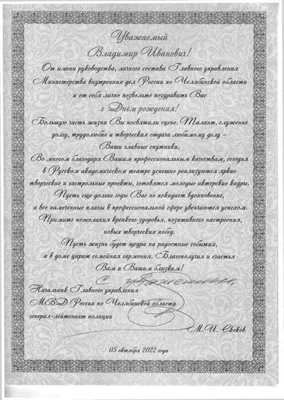 Уважаемый
Владимир Иванович!
От имени руководства, личного состава Главного управления
Министерства внутренних дел России по Челябинской области
и от себя лично позвольте поздравить Вас
с Днём рождения!
Большую часть жизни Вы посвятили сцене. Талант, служение
долгу, трудолюбие и творческая отдача любимому делу –
Ваши главные спутники.
Во многом благодаря Вашим профессиональным качествам, сегодня
в Русском академическом театре успешно реализуются яркие
творческие и гастрольные проекты, готовятся молодые актерские кадры.
Пусть еще долгие годы Вас не покидает вдохновение,
и все намеченные планы в профессиональной сфере увенчаются успехом.
Примите пожелания крепкого здоровья, позитивного настроения,
новых творческих побед.
Пусть жизнь будет щедра на радостные события,
а в доме царит семейная гармония. Благополучия и счастья
Вам и Вашим близким!
С уважением,
Начальник Главного управления
МВД России по Челябинской области
генерал-лейтенант полиции
М.И. Скоков
05 октября 2022 года